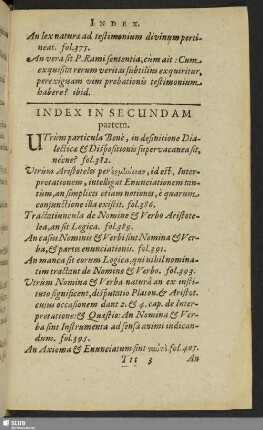 INDEX.
An lex naturæ ad testimonium divinum perti-
neat. fol. 375.
An vera sit P. Rami sententia, cùm ait: Cum
exquisita rerum veritas subtilius exquiritur,
perexiguam vim probationis testimonium
habere? ibid.
INDEX IN SECUNDAM
partem.
UTrùm particula Benè, in definitione Dia-
lectica & Dispositionis supervacanea sit,
nécne? fol. 382.
Utrùm Aristoteles per ἑρμηνείαν, id est, Inter-
pretationem, intelligat Enunciationem tan-
tùm, an simplices etiam notiones, è quarum
conjunctione illa existit. fol. 386.
Tractatiuncula de Nomine & Verbo Aristote-
lea, an sit Logica. fol. 389.
An casus Nominis & Verbi sint Nomina & Ver-
ba, & partes enunciationis. fol. 391.
An manca sit eorum Logica, qui nihil nomina-
tim tractant de Nomine & Verbo. fol. 393.
Utrùm Nomina & Verba naturâ an ex insti-
tuto significent, disputatio Platon. & Aristot.
cuius occasionem dant 2. & 4. cap. de Inter-
pretatione: & Quæstio: An Nomina & Ver-
ba sint Instrumenta ad sensa animi indican-
dum. fol. 395.
An Axioma & Enunciatum sint fol. 405.
Ttt 3 An
SLUB